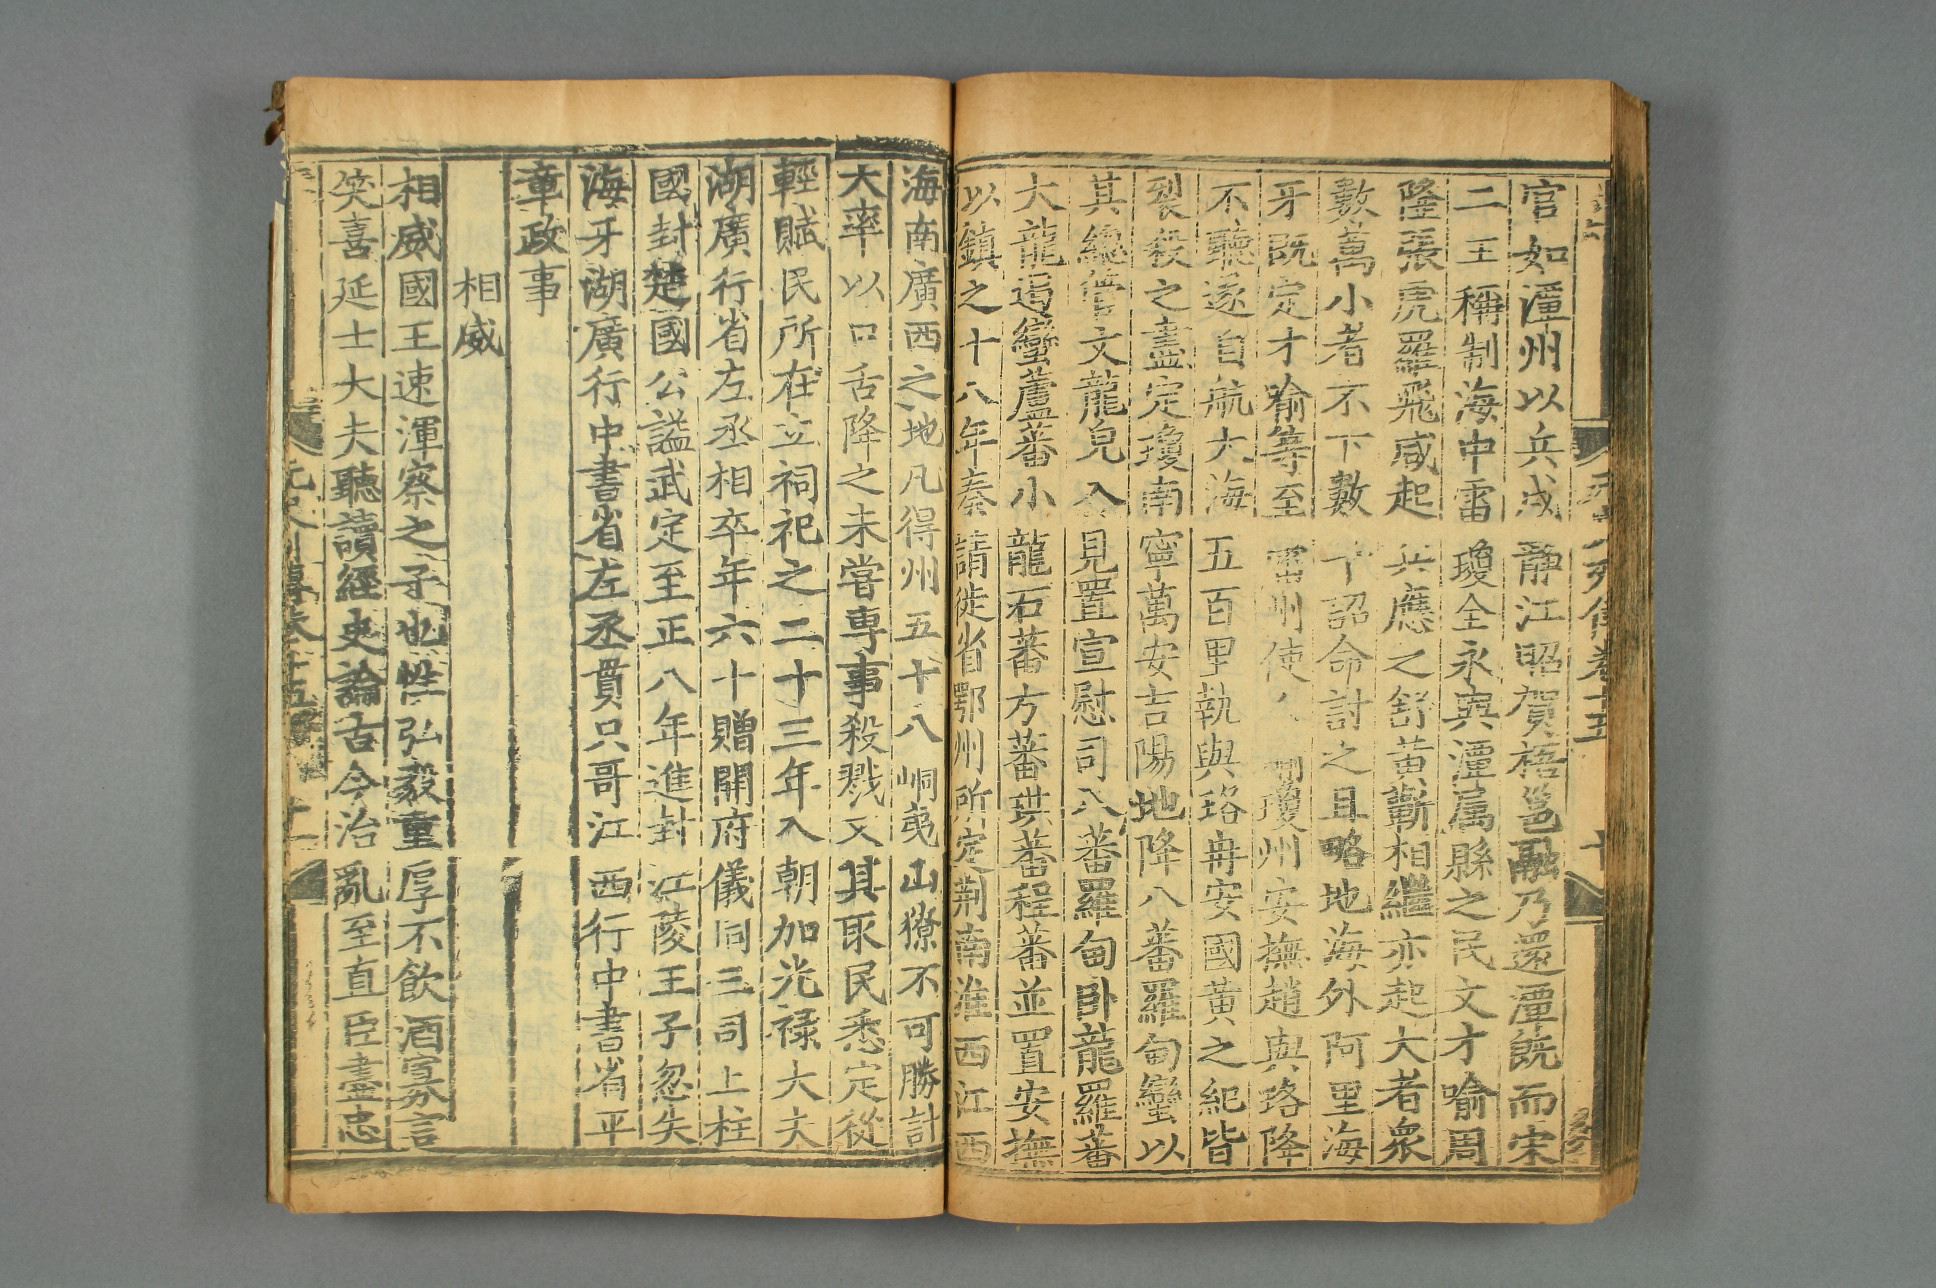 官如潭州以兵戍靜江昭賀梧邕融乃還潭既而宋
二王稱制海中雷瓊全永與潭属縣之民文才喻周
隆張虎羅飛咸起兵應之舒黄蘄相繼亦起大者衆
數萬小者不下數十詔命討之且略地海外阿里海
牙既定才喻等至雷州使人 瓊州安撫趙與珞降
不聽遂自航大海五百里執與珞冉安國黄之紀皆
裂殺之盡定瓊南寧萬安吉陽地降八蕃羅甸蠻以
其總管文龍皃入見置宣慰司八蕃羅甸臥龍羅蕃
大龍遏蠻蘆蕃小龍石蕃方蕃珙蕃程蕃並置安撫
以鎮之十八年奏請徙省鄂州所定荆南淮西江西
海南廣西之地凡得州五十八峒夷山獠不可勝計
大率以口舌降之未嘗専事殺戮又其取民悉定從
輕賦民所在立祠祀之二十三年入朝加光禄大夫
湖廣行省左丞相卒年六十贈開府儀同三司上柱
國封楚國公謚武定至正八年進封江陵王子忽失
海牙湖廣行中書省左丞貫只哥江西行中書省平
章政事
相威
相威國王速渾察之子也性弘毅重厚不飲酒寡言
笑喜延士大夫聽讀經史論古今治亂至直臣盡忠
元史列傳卷十五 十一